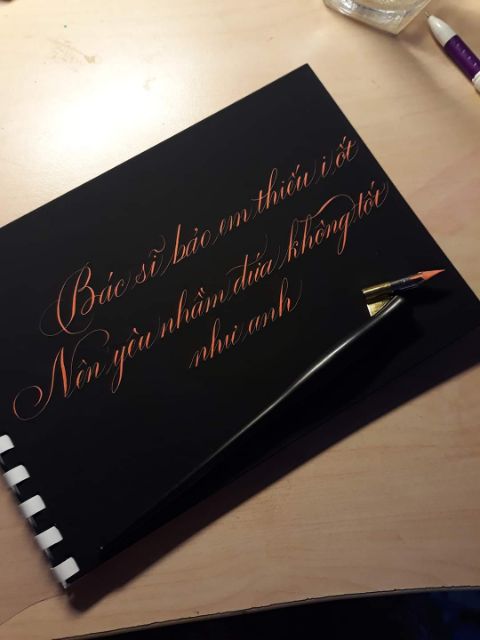 Bác sĩ bảo em thiếu i ốt
Nên yêu nhầm đứa không tốt
như anh